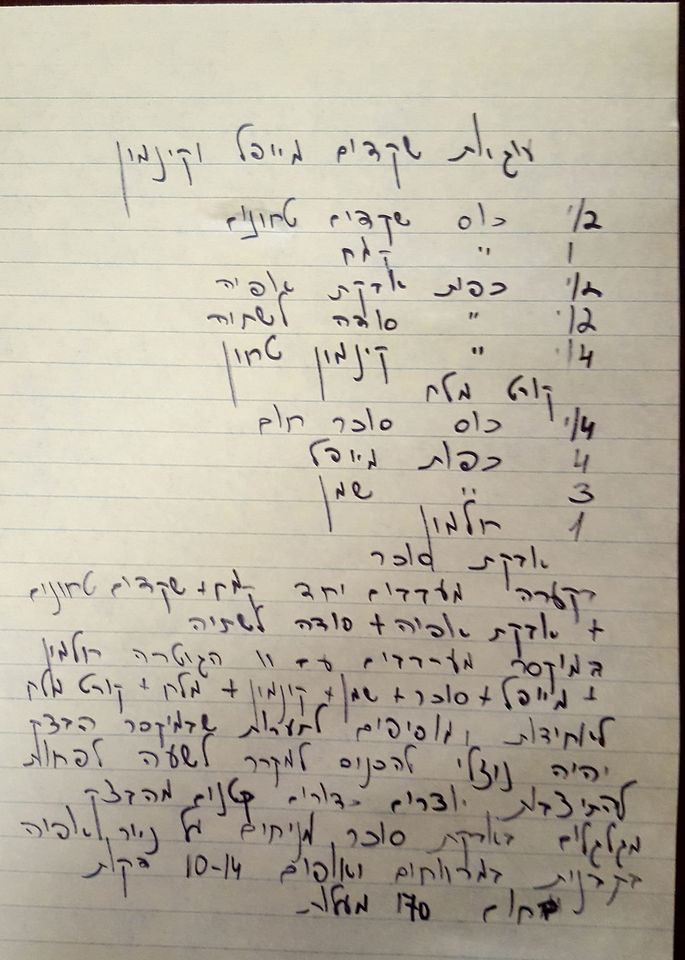 עוגיות שקדים מייפל וקינמון
1/2 כוס שקדים טחונים
1 " קמח
1/2 כפות אבקת אפיה
1/2 " סודה לשתיה
1/4 " קינמון טחון
קורט מלח
1/4 כוס סוכר חום
4 כפות מייפל
3 " שמן
1 חלמון
אבקת סוכר
בקערה מערבבים יחד קמח + שקדים טחונים
+ אבקת אפיה + סודה לשתיה
במיקסר מערבבים עם וו הגיטרה חלמון
+ מייפל + סוכר + שמן + קינמון + מלח + קורט מלח
לאחידות ומוסיפים לתערובת שבמיקסר הבצק
יהיה נוזלי להכניס למקרר לשעה לפחות
להתיצבות יוצרים כדורים קטנים מהבצק
מגלגלים באבקת סוכר מניחים על נייר אפיה
בתבנית במרווחים ואופים 10-14 דקות
בחום 170 מעלות